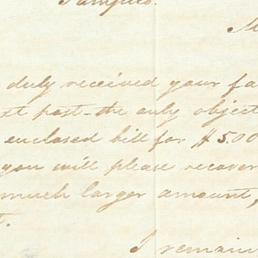 Tampico.
duly received your fa
xt post. the only object
enclosed bill for $500
you will please recover
much larger amount,
t.
I remain